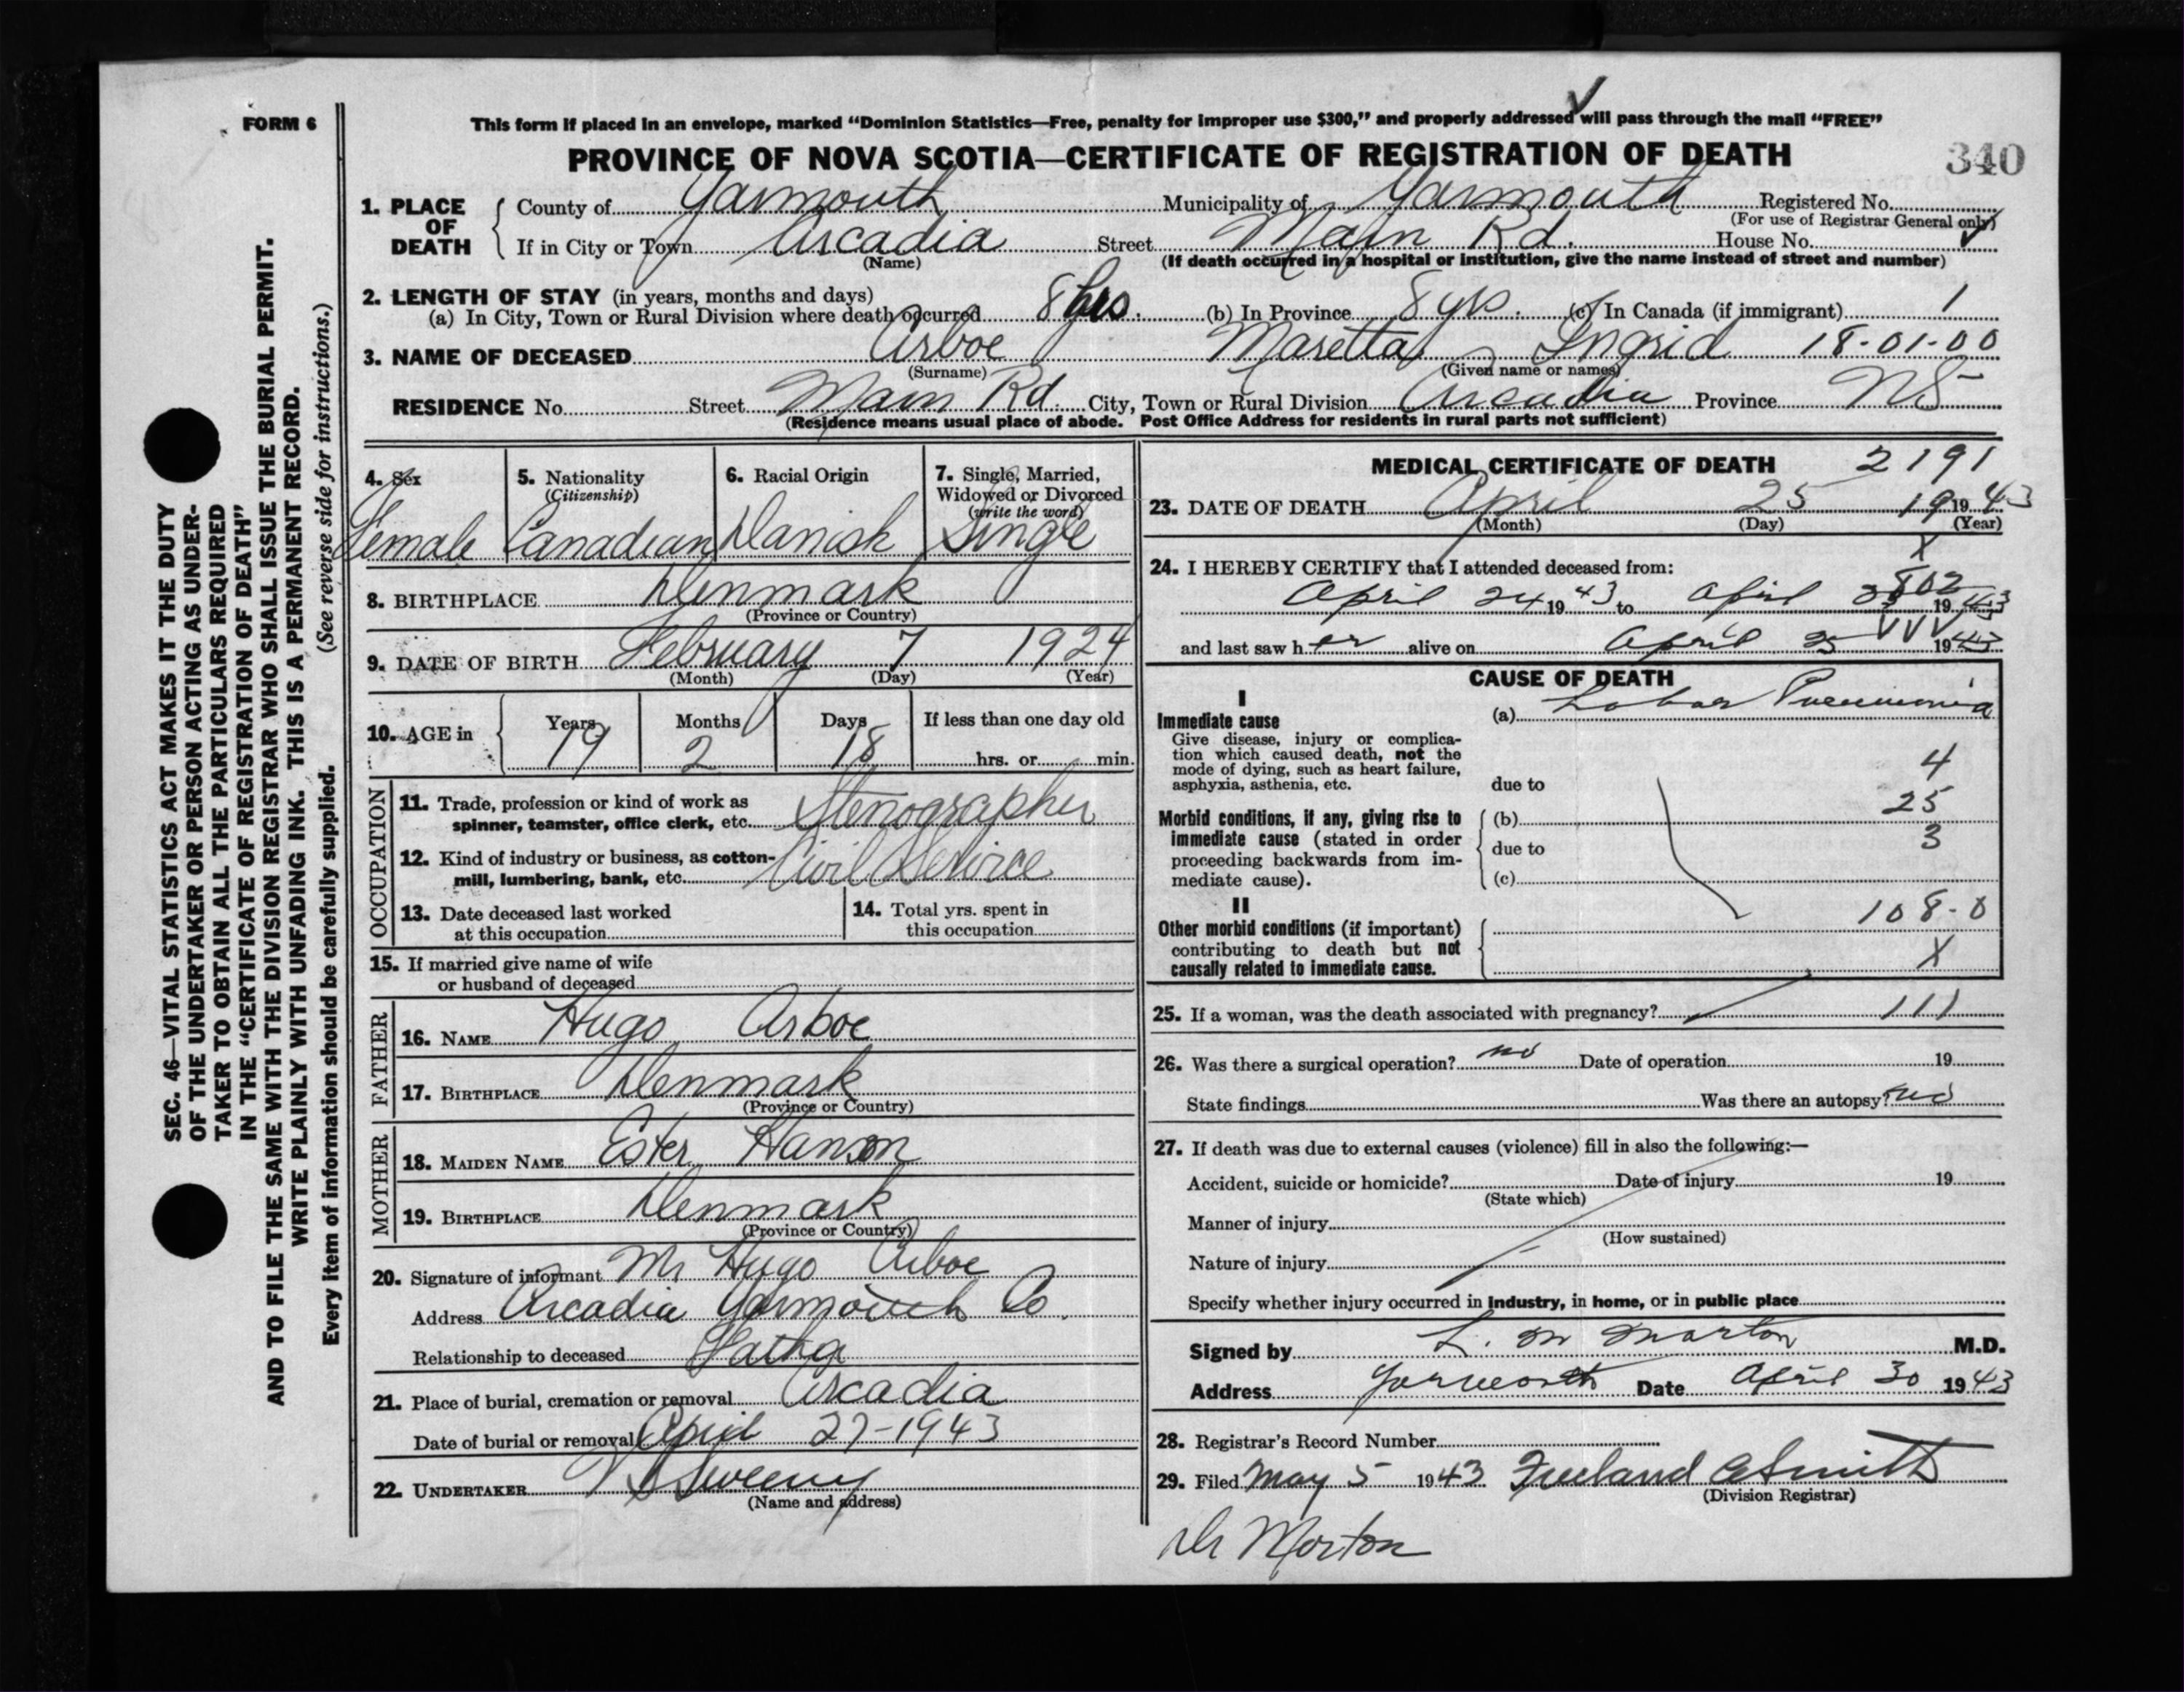 FORM 6
This form if placed in an envelope, marked “Dominion Statistics—Free, penalty for improper use $300,” and properly addressed will pass through the mail “FREE”
PROVINCE OF NOVA SCOTIA—CERTIFICATE OF REGISTRATION OF DEATH
340
1. PLACE OF DEATH
County of Yarmouth Municipality of Yarmouth Registered No.
(For use of Registrar General only)
If in City or Town Arcadia Street Main Rd. House No.
(Name) (If death occurred in a hospital or institution, give the name instead of street and number)
2. LENGTH OF STAY (in years, months and days)
(a) In City, Town or Rural Division where death occurred 8 yrs. (b) In Province 8 yrs. (c) In Canada (if immigrant) 1
3. NAME OF DECEASED Arboe Maretta Ingrid 18-01-00
(Surname) (Given name or names)
RESIDENCE No. Street Main Rd. City, Town or Rural Division Arcadia Province NS
(Residence means usual place of abode. Post Office Address for residents in rural parts not sufficient)
4. Sex
Female
5. Nationality
(Citizenship)
Canadian
6. Racial Origin
Danish
7. Single, Married,
Widowed or Divorced
(write the word)
Single
8. BIRTHPLACE Denmark
(Province or Country)
9. DATE OF BIRTH February 7 1924
(Month) (Day) (Year)
10. AGE in Years Months Days If less than one day old
19 2 18 hrs. or min.
OCCUPATION
11. Trade, profession or kind of work as
spinner, teamster, office clerk, etc. Stenographer
12. Kind of industry or business, as cotton-
mill, lumbering, bank, etc. Civil Service
13. Date deceased last worked
at this occupation
14. Total yrs. spent in
this occupation
15. If married give name of wife
or husband of deceased
FATHER
16. NAME Hugo Arboe
17. BIRTHPLACE Denmark
(Province or Country)
MOTHER
18. MAIDEN NAME Ester Hanson
19. BIRTHPLACE Denmark
(Province or Country)
20. Signature of informant Mr Hugo Arboe
Address Arcadia Yarmouth Co.
Relationship to deceased Father
21. Place of burial, cremation or removal Arcadia
Date of burial or removal April 27-1943
22. UNDERTAKER Sweeny
(Name and address)
MEDICAL CERTIFICATE OF DEATH 2191
23. DATE OF DEATH April 25 19 19 43
(Month) (Day) (Year)
X
24. I HEREBY CERTIFY that I attended deceased from:
802
April 24 19 43 to April 25 19 43
and last saw her alive on April 25 19 43
CAUSE OF DEATH
I
Immediate cause
Give disease, injury or complica-
tion which caused death, not the
mode of dying, such as heart failure,
asphyxia, asthenia, etc.
(a) Lobar Pneumonia
4
due to
25
Morbid conditions, if any, giving rise to
immediate cause (stated in order
proceeding backwards from im-
mediate cause).
(b)
3
due to
(c)
II
Other morbid conditions (if important)
contributing to death but not
causally related to immediate cause.
108-0
X
25. If a woman, was the death associated with pregnancy? 111
26. Was there a surgical operation? no Date of operation 19
State findings Was there an autopsy? no
27. If death was due to external causes (violence) fill in also the following:—
Accident, suicide or homicide? Date of injury 19
(State which)
Manner of injury
(How sustained)
Nature of injury
Specify whether injury occurred in industry, in home, or in public place
Signed by L. M Morton M.D.
Address Yarmouth Date April 30 1943
28. Registrar's Record Number
29. Filed May 5 1943 Freeland A Smith
(Division Registrar)
Dr Morton
SEC. 46—VITAL STATISTICS ACT MAKES IT THE DUTY
OF THE UNDERTAKER OR PERSON ACTING AS UNDER-
TAKER TO OBTAIN ALL THE PARTICULARS REQUIRED
IN THE “CERTIFICATE OF REGISTRATION OF DEATH”
AND TO FILE THE SAME WITH THE DIVISION REGISTRAR WHO SHALL ISSUE THE BURIAL PERMIT.
WRITE PLAINLY WITH UNFADING INK. THIS IS A PERMANENT RECORD.
Every item of information should be carefully supplied. (See reverse side for instructions.)